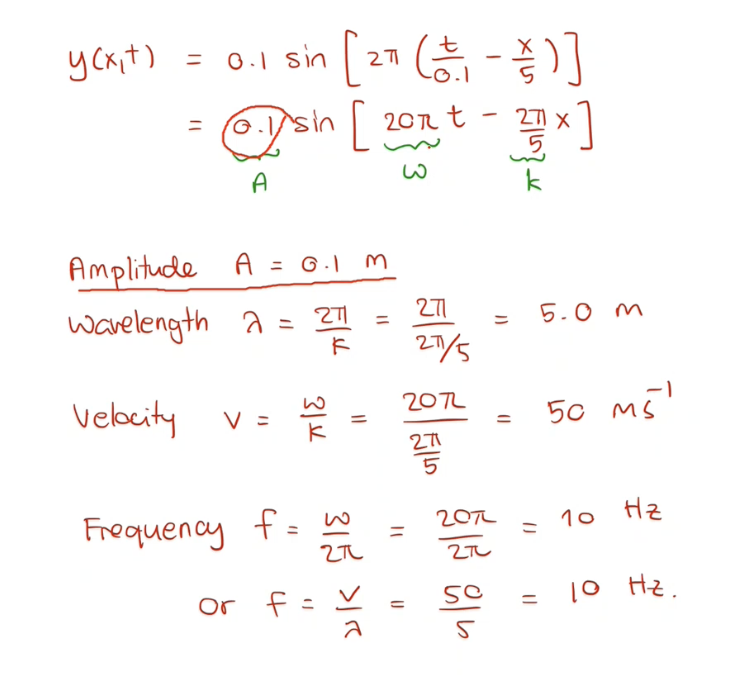 y(x,t) = 0.1 sin [ 2π ( t/0.1 - x/5 ) ]
= 0.1 sin [ 20π t - 2π/5 x ]
A ω k
Amplitude A = 0.1 m
Wavelength λ = 2π/k = 2π/2π/5 = 5.0 m
Velocity v = ω/k = 20π/2π/5 = 50 ms⁻¹
Frequency f = ω/2π = 20π/2π = 10 Hz
Or f = v/λ = 50/5 = 10 Hz.